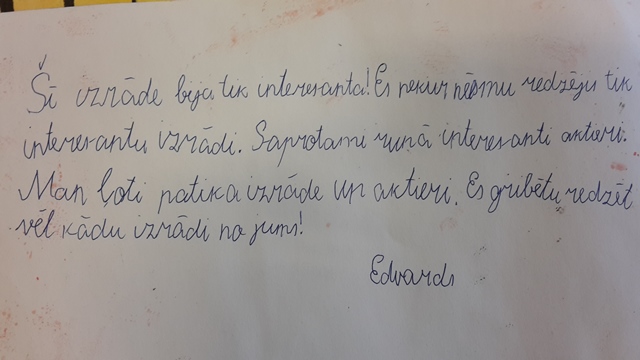 Šī izrāde bija tik interesanta! Es nekur nēsmu redzējis tik
interesantu izrādi. Saprotami runā interesanti aktieri.
Man ļoti patika izrāde un aktieri. Es gribētu redzēt
vēl kādu izrādi no jums!
Edvards